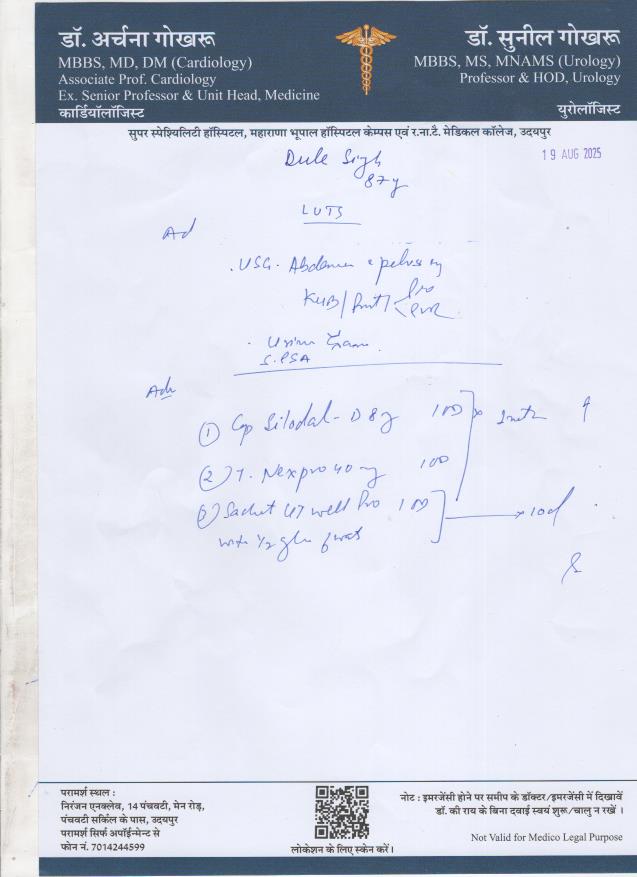 डॉ. अर्चना गोखरू
MBBS, MD, DM (Cardiology)
Associate Prof. Cardiology
Ex. Senior Professor & Unit Head, Medicine
कार्डियॉलॉजिस्ट
डॉ. सुनील गोखरू
MBBS, MS, MNAMS (Urology)
Professor & HOD, Urology
युरोलॉजिस्ट
सुपर स्पेश्यिलिटी हॉस्यिटल, महाराणा भूपाल हॉस्पिटल केम्पस एवं र.ना.टै. मेडिकल कॉलेज, उदयपुर
19 AUG 2025
Dule Singh
87y
LUTS
Ad
. USG. Abdomen & pelvis
KUB/Prost/ Pre
PVR
. Urine Exam.
S. PSA
Adv
① Cap Silodal-D 8mg 1OD
② T. Nexpro 40mg 1OD
③ Sachet UT well Pro 1OD → 10d
with 1/2 glass of water
परामर्श स्थल :
निरंजन एनक्लेव, 14 पंचवटी, मेन रोड़,
पंचवटी सर्किल के पास, उदयपुर
परामर्श सिर्फ अपॉईन्मेन्ट से
फोन नं. 7014244599
लोकेशन के लिए स्केन करें।
नोट : इमरजेंसी होने पर समीप के डॉक्टर/इमरजेंसी में दिखावें
डॉ. की राय के बिना दवाई स्वयं शुरू/चालु न रखें ।
Not Valid for Medico Legal Purpose